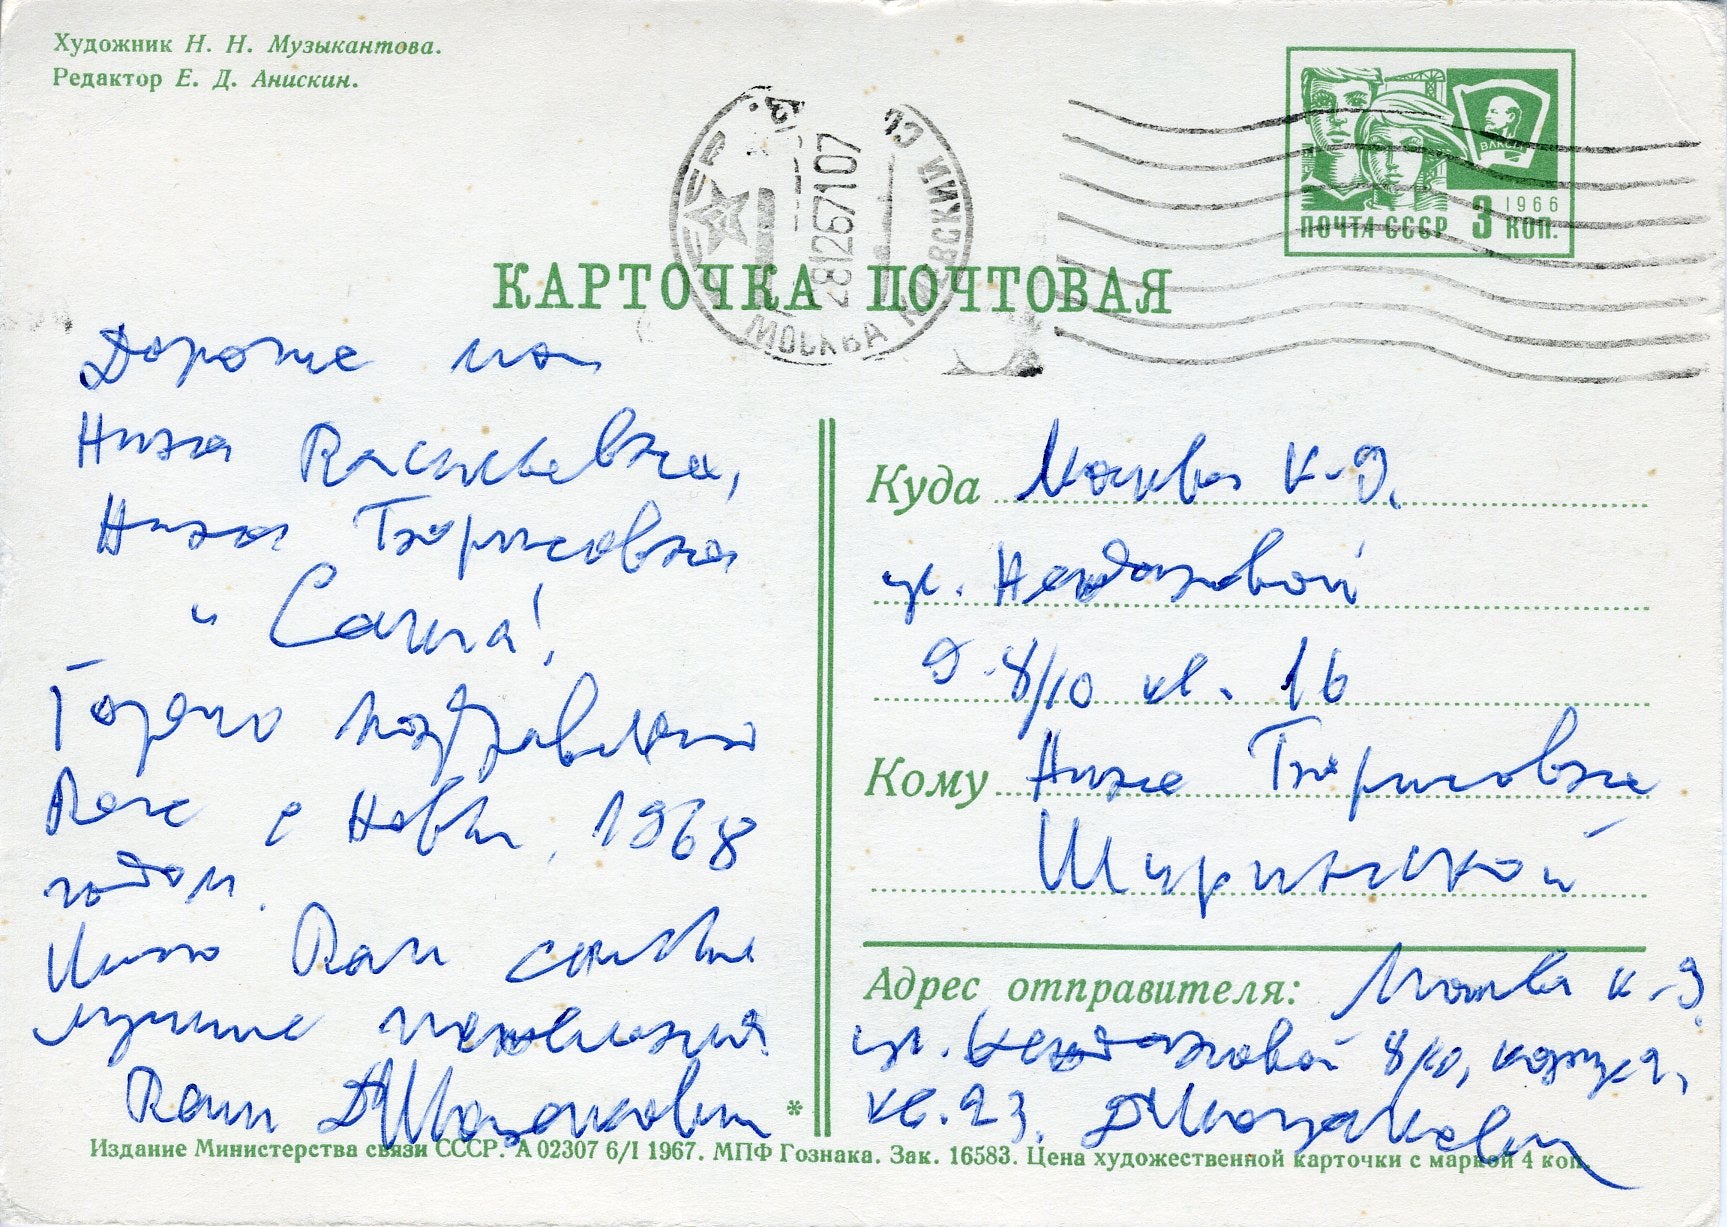 Художник Н. Н. Музыкантова.
Редактор Е. Д. Анискин.
ВЛКСМ
1966
ПОЧТА СССР 3 КОП.
28126 7107
МОСКВА
КАРТОЧКА ПОЧТОВАЯ
Дорогие мои
Нина Васильевна,
Нина Борисовна
и Саша!
Горячо поздравляю
Вас с Новым 1968
годом.
Шлю Вам самые
лучшие пожелания.
Ваш Д Шостакович
Куда Москва К-9,
ул. Неждановой
д. 8/10 кв. 16
Кому Нине Борисовне
Ширинской
Адрес отправителя: Москва К-9
ул. Неждановой 8/10, корпус 2,
кв. 23. Д Шостакович
*
Издание Министерства связи СССР. А 02307 6/I 1967. МПФ Гознака. Зак. 16583. Цена художественной карточки с маркой 4 коп.